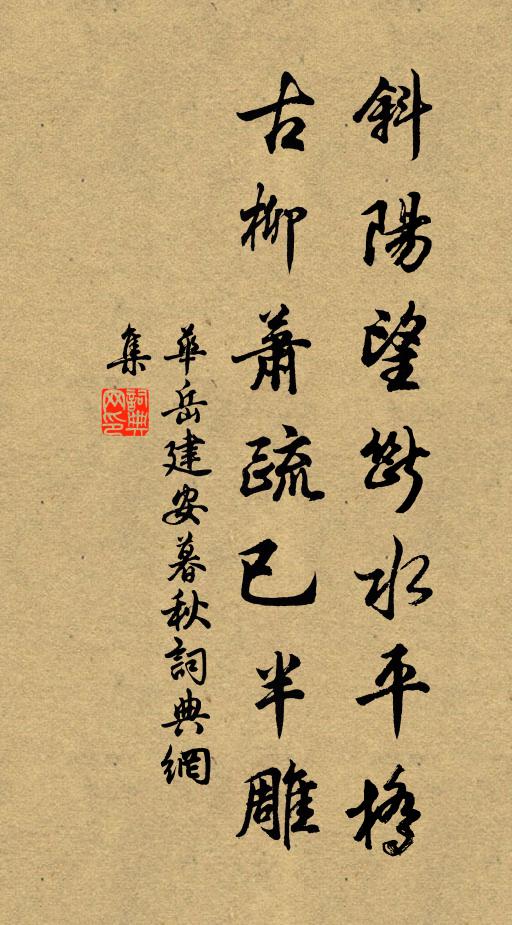 斜陽望斷水平橋
古柳蕭疏已半雕
華岳建安暮秋詞典網
集
詞典網印